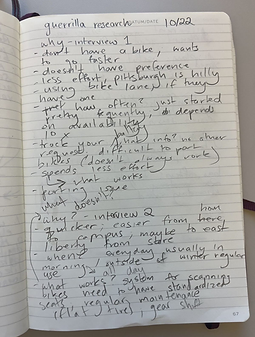 guerrilla research 10/22
why - interview 1
- don't have a bike, wants
to go faster
- doesn't have preference
- less effort, pittsburgh is hilly
- using bike lane, if they
have one
how, often? just started
pretty frequently, depends
on availability
10 x
- track your info? no other
request, difficult to park
bikes (doesn't always work)
- spends less effort
→ what works
- parking issue
what doesn't
why? - interview 2
- quicker, easier from
to campus, maybe to east
liberty from store
- when? everyday usually in
morning, outside of winter regular
use - all day
- what works? system for scanning
bikes need to have standardized
gears, regular maintenance
(flat tire), gear shift
67